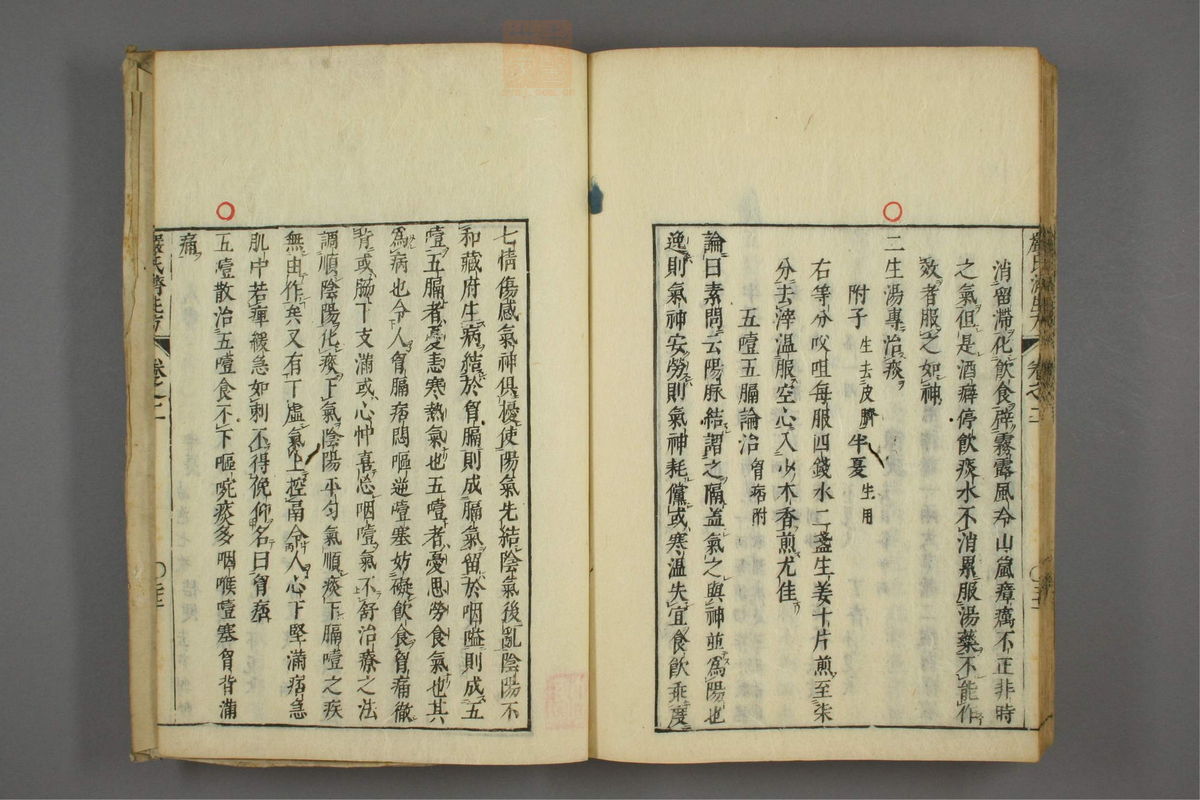 消留滯化飲食辟霧露風冷山嵐瘴癘不正非時
之氣但是酒癖停飲痰水不消累服湯藥不能作
效者服之如神
二生湯專治痰
附子生去皮臍半夏生用
右等分㕮咀每服四錢水二盞生姜十片煎至柒
分去滓温服空心入少木香煎尤佳
五噎五膈論治胷痞附
論曰素問云陽脉結謂之隔盖氣之與神並為陽也
逸則氣神安勞則氣神耗儻或寒温失宜食飲乖度
七情傷感氣神俱擾使陽氣先結陰氣後亂陰陽不
和藏府生病結於胷膈則成膈氣留於咽嗌則成五
噎五膈者憂恚寒熱氣也五噎者憂思勞食氣也其
為病也令人胷膈痞悶嘔逆噎塞妨礙飲食胷痛徹
背或脇下支滿或心忡喜忘咽噎氣不舒治療之法
調順陰陽化痰下氣陰陽平匀氣順痰下膈噎之疾
無由作矣又有下虛氣上控膈令人心下堅滿痞急
肌中若痺緩急如刺不得俛仰名曰胷痞
五噎散治五噎食不下嘔啘痰多咽喉噎塞胷背滿
痛
嚴氏濟生方 卷之二